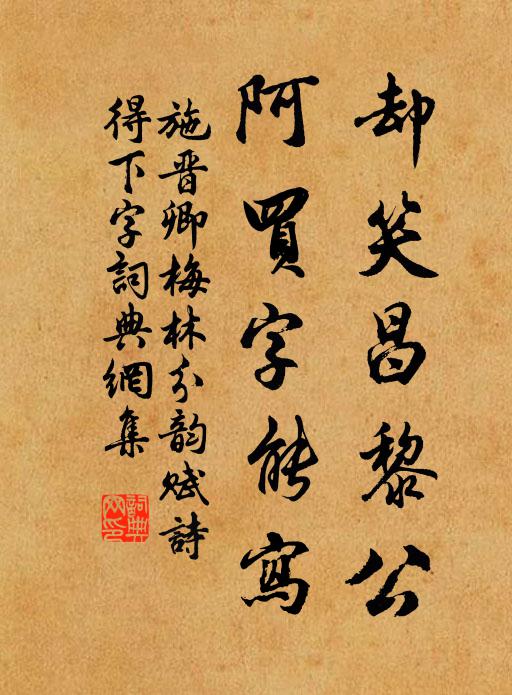 却笑昌黎公
阿買字能寫
施晋卿梅林分韵賦詩
得下字詞典網集
詞典網印